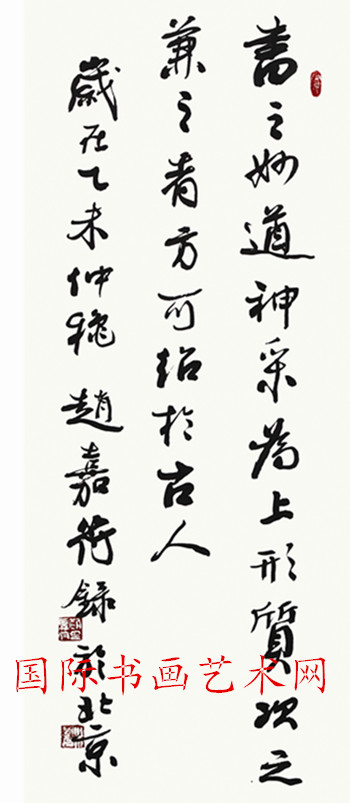 書之妙道神采為上形質次之
兼之者方可紹於古人
歲在乙未仲秋趙嘉衛錄於北京
国际书画艺术网